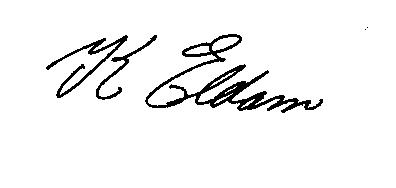 K Eldam